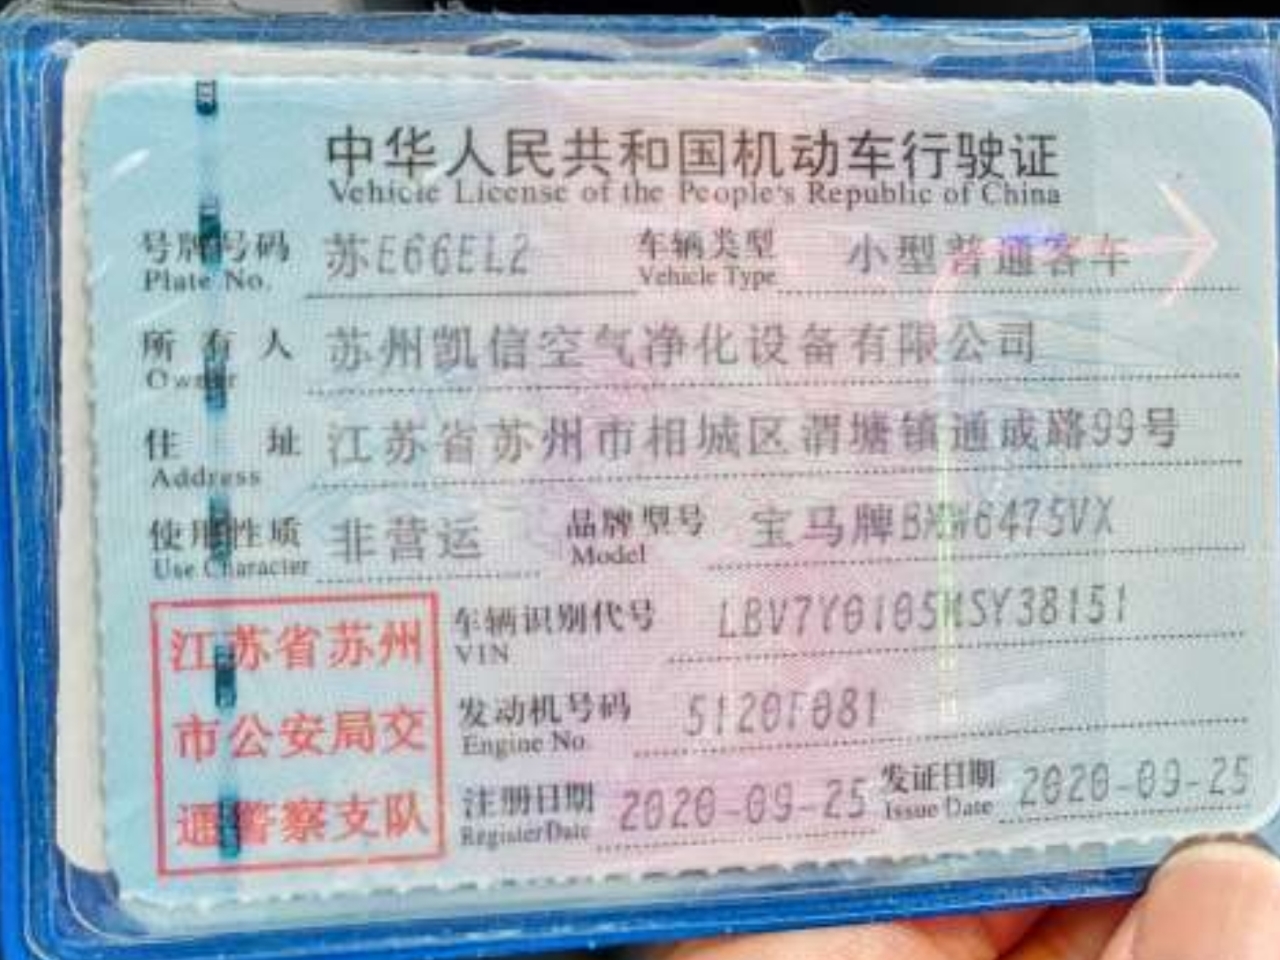 中华人民共和国机动车行驶证
Vehicle License of the People's Republic of China
号牌号码 苏E66EL2 车辆类型 小型普通客车
Plate No. Vehicle Type
所有人 苏州凯信空气净化设备有限公司
Owner
住址 江苏省苏州市相城区渭塘镇通成路99号
Address
使用性质 非营运 品牌型号 宝马牌BMW6475VX
Use Character Model
江苏省苏州
市公安局交
通警察支队
车辆识别代号 LBV7Y0105MSY38151
VIN
发动机号码 5120F081
Engine No.
注册日期 2020-09-25 发证日期 2020-09-25
Register Date Issue Date